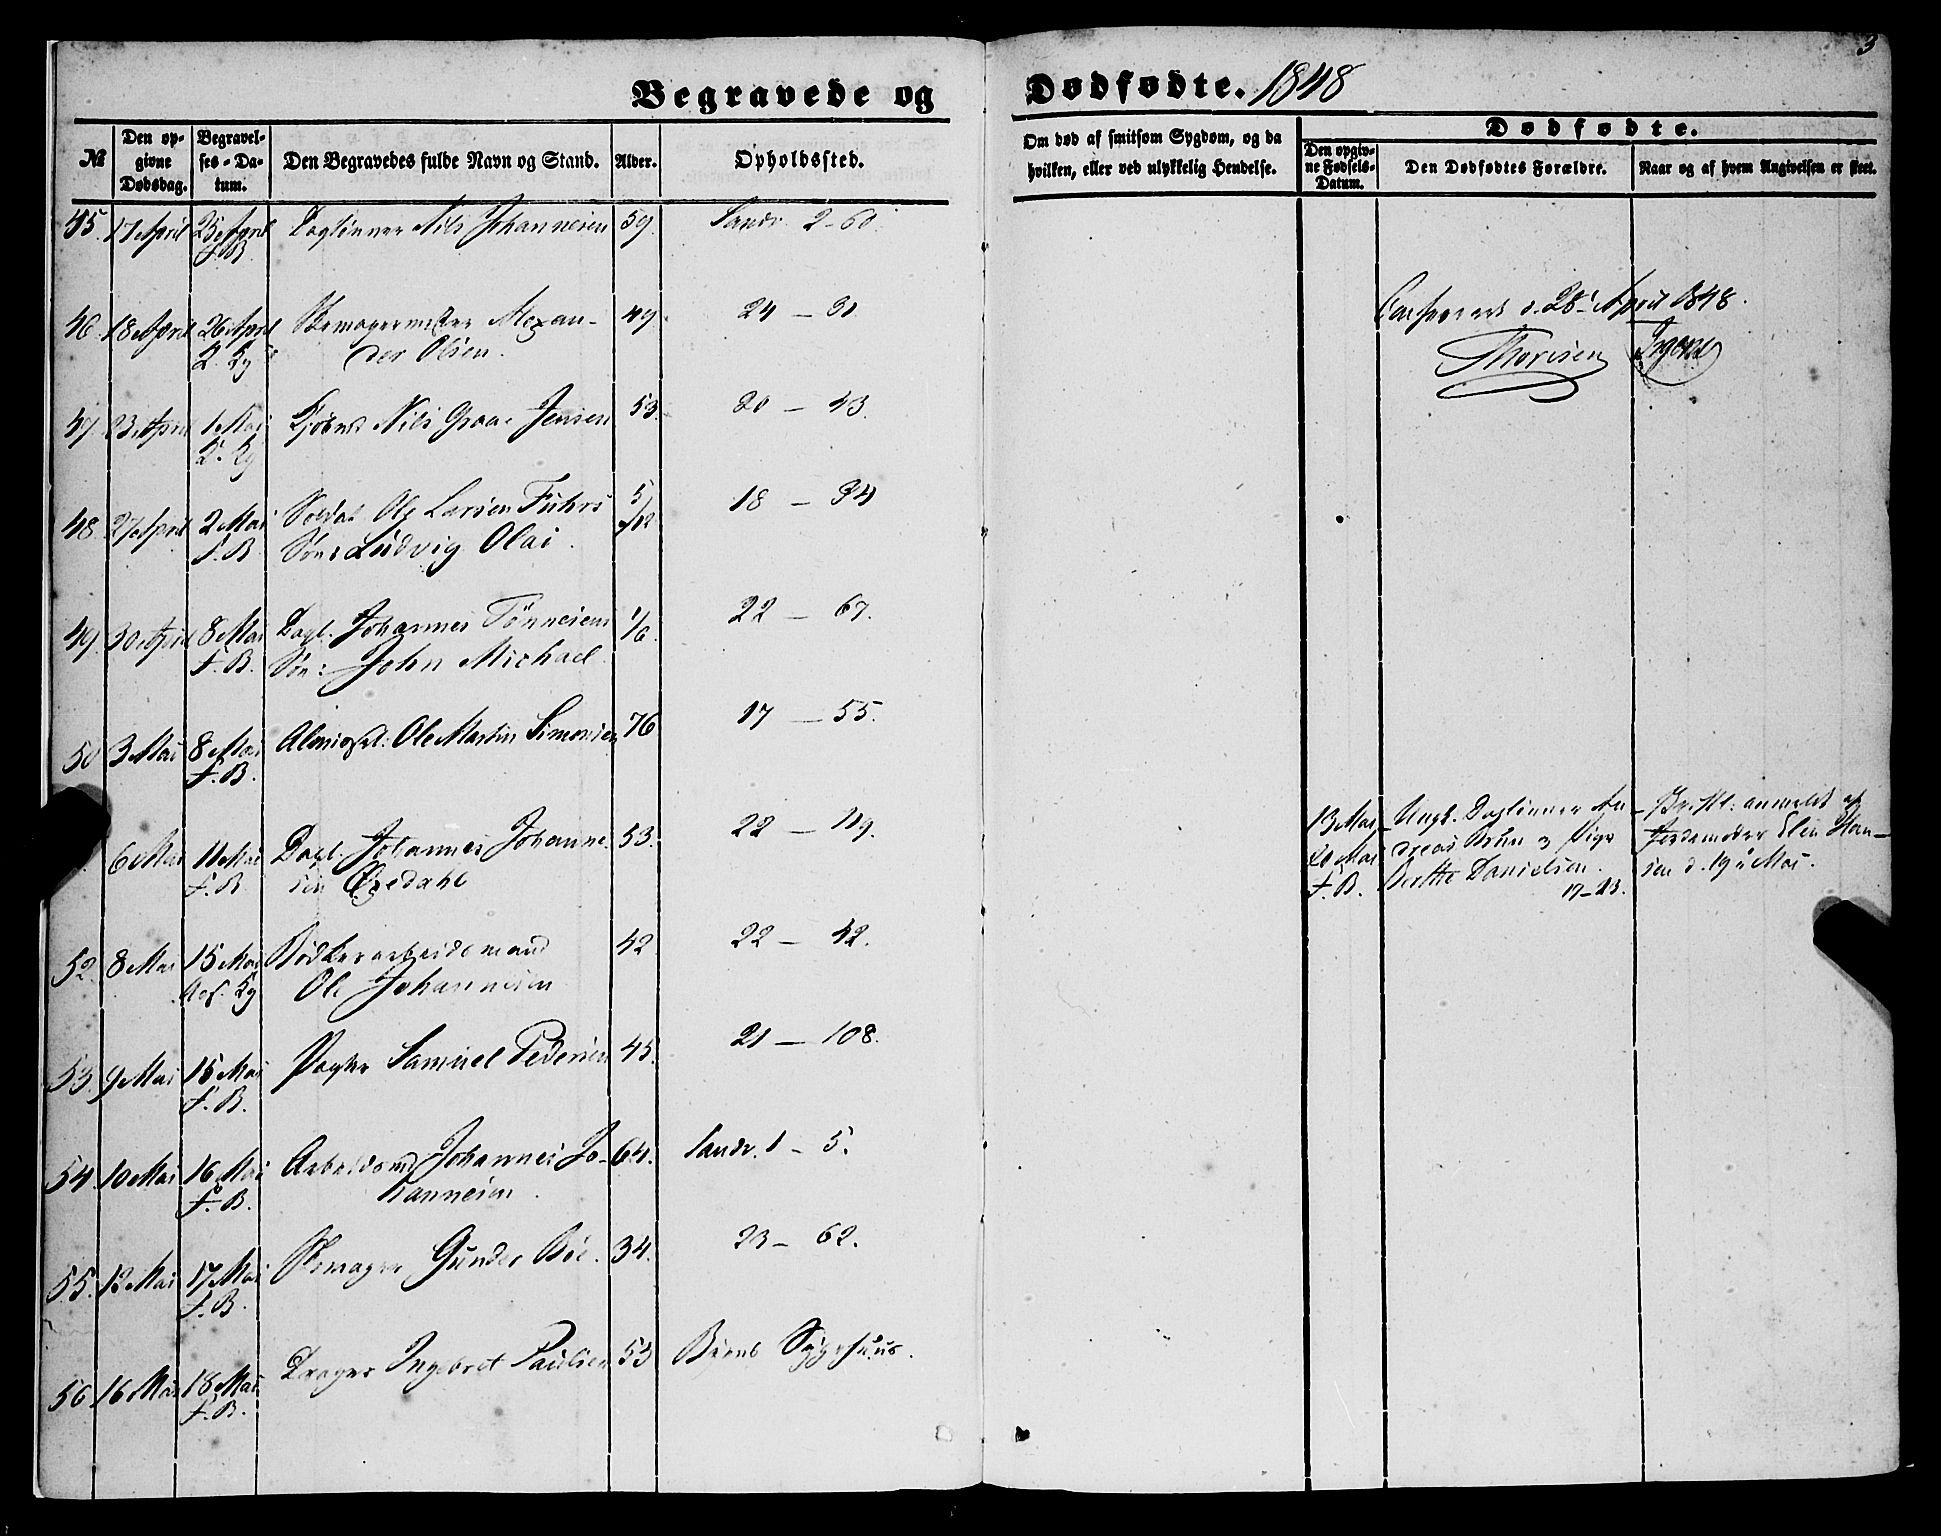 3
Begravede og Dødfødte. 1848
№
Den op-
givne
Dødsdag.
Begravel-
ses-Da-
tum.
Den Begravedes fulde Navn og Stand.
Alder.
Opholdssted.
Om død af smitsom Sygdom, og da
hvilken, eller ved ulykkelig Hendelse.
Dødfødte.
Den opgiv-
ne Fødsels-
Datum.
Den Dødfødtes Forældre.
Naar og af hvem Angivelsen er skeet.
45. 17 April 25 April Daglönner Nils Johannesen 59. Sandv. 2-60.
F.B.
46. 18 April 26 April Skomagermester Alexan- 49. 24 - 31
der Olsen.
28 April 1848.
Thorsen
47. 23 April 1 Mai Nils Graae Jensen 53. 20 - 43.
48. 27 April 2 Mai Soldat Ole Larsen Fuhrs 5/12 18 - 34
F.B. Søn: Ludvig Olai.
49. 30 April 8 Mai Dagl. Johannes Tönnesens 1/6. 22 - 67.
F.B. Søn: John Michael.
50 3 Mai 8 Mai Almissel: Ole Martin Simonsen 76 17 - 55.
F.B.
6 Mai 11 Mai Dagl. Johannes Johanne- 53. 22 - 119.
F.B. sen
13 Mai Ungk. Daglönner An-
20 Mai dreas Brun og Pige
F.B. Berthe Danielsen.
17-23.
anmeldt af
Jordemoder Elen Han-
sen d. 19 Mai.
52. 8 Mai 15 Mai Bødkerarbeidsmand 42 22 - 42.
Ole Johannesen
53. 9 Mai 15 Mai Samuel Pedersen 45. 21 - 108.
F.B.
54. 10 Mai 16 Mai Arbeidsmd Johannes Jo- 64. Sandv. 1 - 5.
F.B. hannesen.
55. 12 Mai 17 Mai Skomager Gunder Böe. 34. 23 - 62.
F.B.
56 16 Mai 18 Mai Drager Ingebret Paulsen 53 Byens Sygehuus.
F.B.